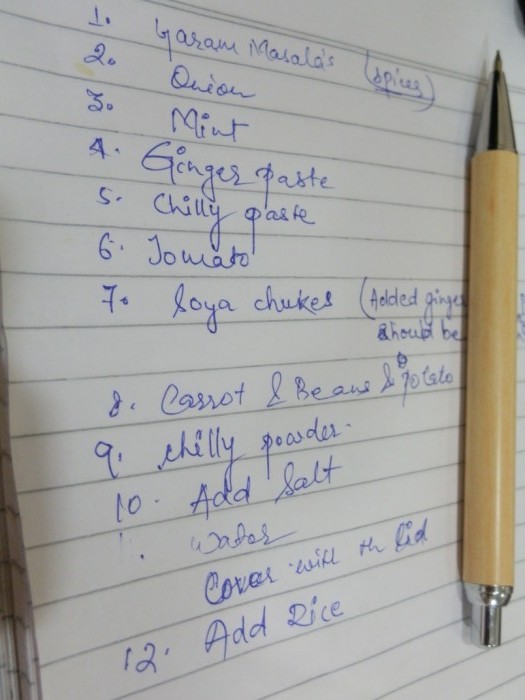 1. Garam Masala's (spices)
2. Onion
3. Mint
4. Ginger paste
5. Chilly paste
6. Tomato
7. Soya chukes (Added ginge
should be
8. Carrot & Beans & Potato
9. chilly powder.
10. Add Salt
. Water
Cover with th lid
12. Add Rice